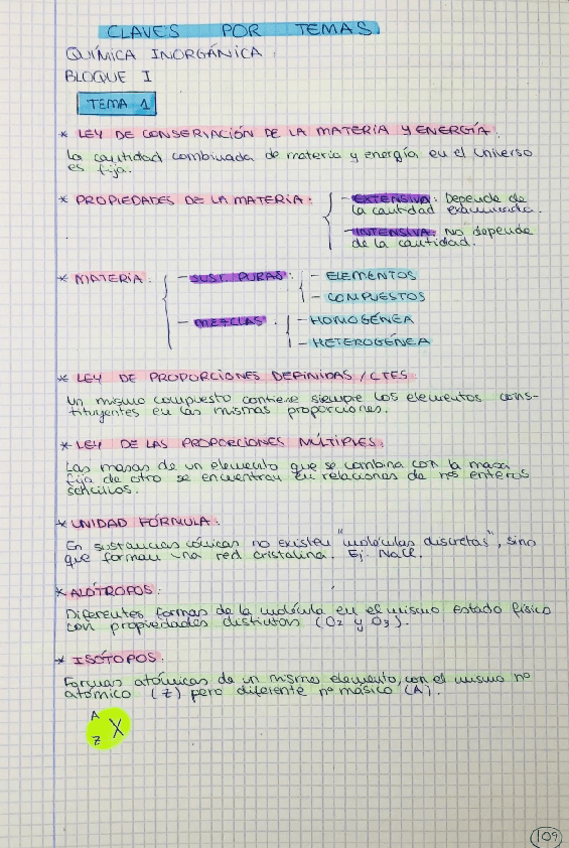 CLAVES POR TEMAS
QUÍMICA INORGÁNICA
BLOQUE I
TEMA 1
* LEY DE CONSERVACIÓN DE LA MATERIA Y ENERGÍA.
La cantidad combinada de materia y energía en el Universo
es fija.
* PROPIEDADES DE LA MATERIA:
- EXTENSIVA: Depende de
la cantidad examinada.
- INTENSIVA: No depende
de la cantidad.
* MATERIA:
- SUST. PURAS:
- ELEMENTOS
- COMPUESTOS
- MEZCLAS:
- HOMOGÉNEA
- HETEROGÉNEA
* LEY DE PROPORCIONES DEFINIDAS / CTES
Un mismo compuesto contiene siempre los elementos cons-
tituyentes en las mismas proporciones.
* LEY DE LAS PROPORCIONES MÚLTIPLES:
Las masas de un elemento que se combina con la masa
fija de otro se encuentran en relaciones de nos enteros
sencillos.
* UNIDAD FÓRMULA:
En sustancias iónicas no existen "moléculas discretas", sino
que forman una red cristalina. Ej. NaCl.
* ALÓTROPOS:
Diferentes formas de la molécula en el mismo estado físico
con propiedades distintas (O2 y O3).
* ISÓTOPOS:
Formas atómicas de un mismo elemento, con el mismo no
atómico (Z) pero diferente no másico (A).
A
X
Z
109